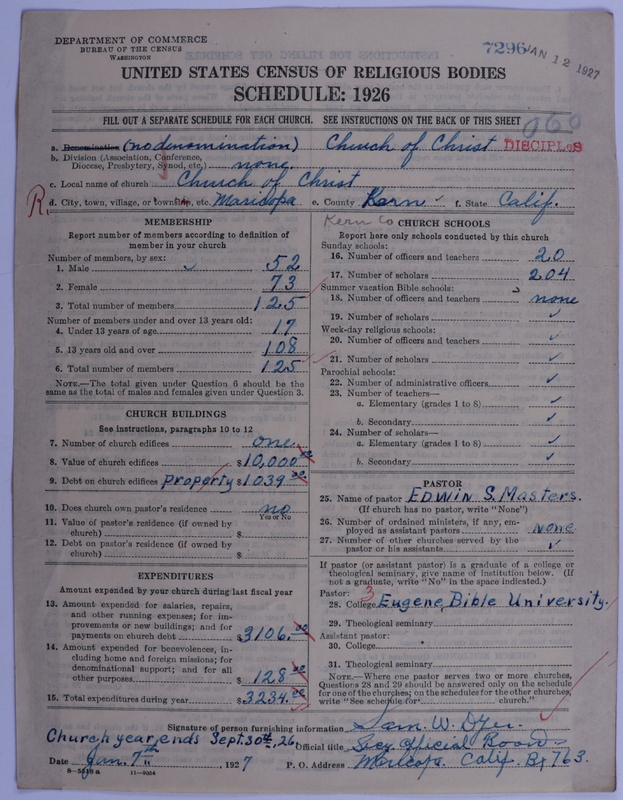 DEPARTMENT OF COMMERCE
BUREAU OF THE CENSUS
WASHINGTON
7296 JAN 12 1927
UNITED STATES CENSUS OF RELIGIOUS BODIES
SCHEDULE: 1926
FILL OUT A SEPARATE SCHEDULE FOR EACH CHURCH. SEE INSTRUCTIONS ON THE BACK OF THIS SHEET
060
a. Denomination (no denomination) Church of Christ DISCIPLES
b. Division (Association, Conference,
Diocese, Presbytery, Synod, etc.) none
c. Local name of church Church of Christ
R d. City, town, village, or township, etc. Maricopa e. County Kern f. State Calif.
MEMBERSHIP
Report number of members according to definition of
member in your church
Number of members, by sex:
1. Male 52
2. Female 73
3. Total number of members 125
Number of members under and over 13 years old:
4. Under 13 years of age 17
5. 13 years old and over 108
6. Total number of members 125
NOTE.—The total given under Question 6 should be the
same as the total of males and females given under Question 3.
CHURCH BUILDINGS
See instructions, paragraphs 10 to 12
7. Number of church edifices one
8. Value of church edifices $10,000 00
9. Debt on church edifices Property $1039 00
10. Does church own pastor's residence no
Yes or No
11. Value of pastor's residence (if owned by
church) $
12. Debt on pastor's residence (if owned by
church) $
EXPENDITURES
Amount expended by your church during last fiscal year
13. Amount expended for salaries, repairs,
and other running expenses; for im-
provements or new buildings; and for
payments on church debt $3106. 00
14. Amount expended for benevolences, in-
cluding home and foreign missions; for
denominational support; and for all
other purposes $128 00
15. Total expenditures during year $3234. 00
Kern Co CHURCH SCHOOLS
Report here only schools conducted by this church
Sunday schools:
16. Number of officers and teachers 20
17. Number of scholars 204
Summer vacation Bible schools:
18. Number of officers and teachers none
19. Number of scholars ✓
Week-day religious schools:
20. Number of officers and teachers ✓
21. Number of scholars ✓
Parochial schools:
22. Number of administrative officers ✓
23. Number of teachers—
a. Elementary (grades 1 to 8) ✓
b. Secondary ✓
24. Number of scholars—
a. Elementary (grades 1 to 8) ✓
b. Secondary ✓
PASTOR
25. Name of pastor EDWIN S. Masters.
(If church has no pastor, write "None")
26. Number of ordained ministers, if any, em-
ployed as assistant pastors None
27. Number of other churches served by the
pastor or his assistants ✓
If pastor (or assistant pastor) is a graduate of a college or
theological seminary, give name of institution below. (If
not a graduate, write "No" in the space indicated.)
Pastor: 3
28. College Eugene Bible University.
29. Theological seminary
Assistant pastor:
30. College
31. Theological seminary
NOTE.—Where one pastor serves two or more churches,
Questions 28 and 29 should be answered only on the schedule
for one of the churches; on the schedules for the other churches,
write "See schedule for church."
Signature of person furnishing information Sam W. Dyer.
Church year, ends Sept. 30th, 26 Official title Secy Official Board
Date Jan. 7th, 1927 P. O. Address Maricopa. Calif. Bx 763.
8—5518 a 11—9054